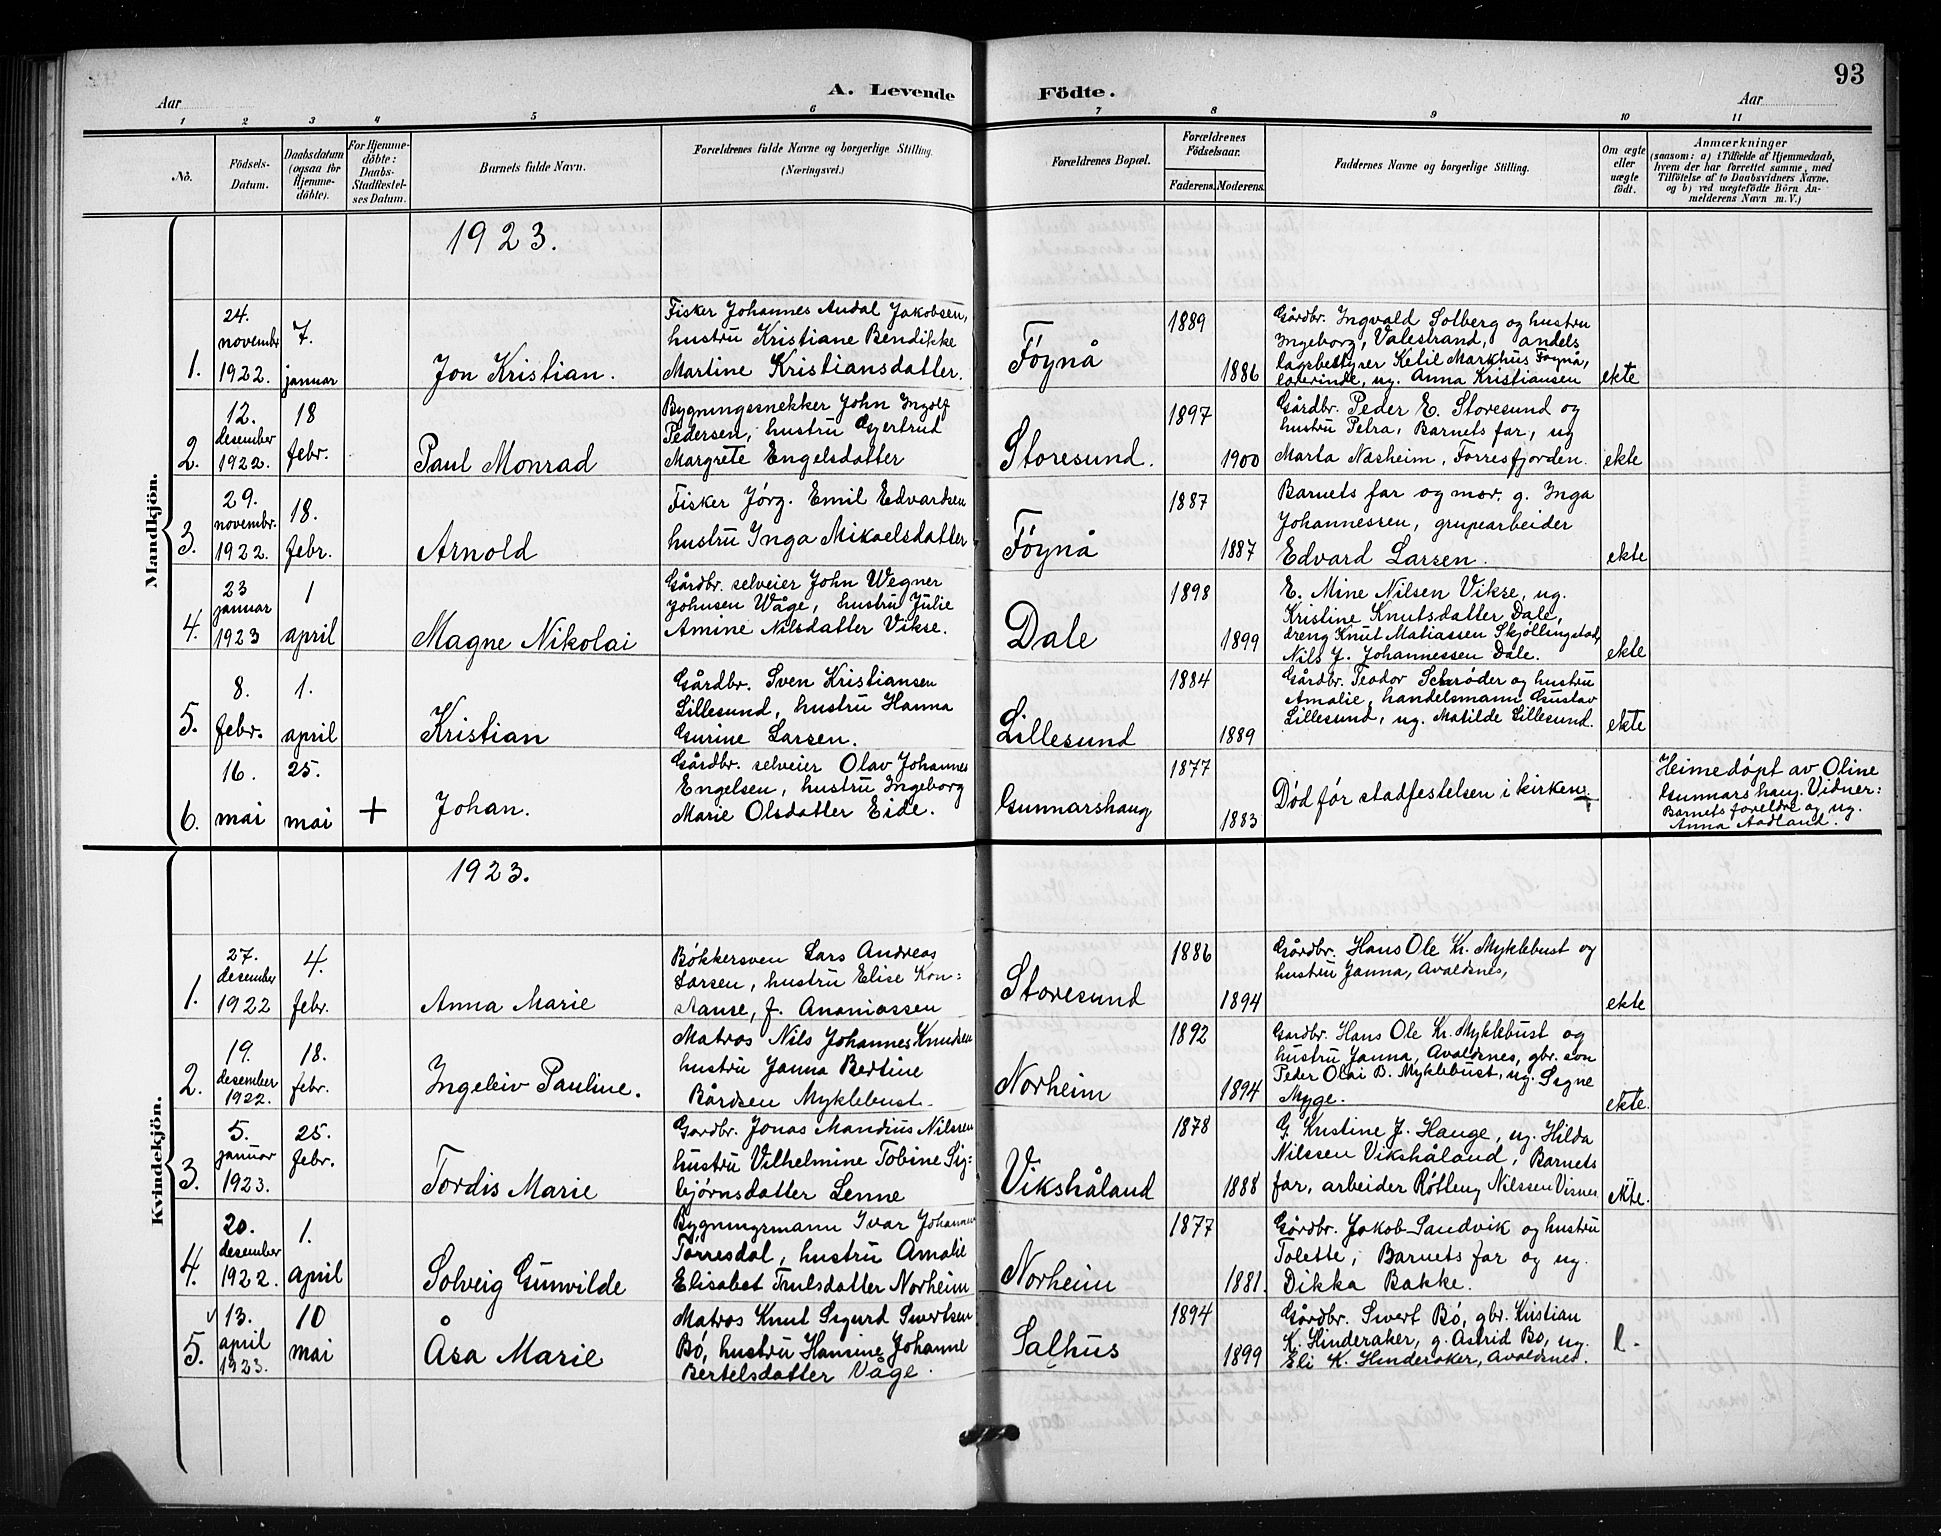 93
A. Levende Födte.
Aar
Aar
1 2 3 4 5 6 7 8 9 10 11
No.
Födsels-Datum.
Daabsdatum (ogsaa for Hjemme-döbte).
For Hjemme-döbte: Daabs-Stadfæstel-ses Datum.
Barnets fulde Navn.
Forældrenes fulde Navne og borgerlige Stilling. (Næringsvei.)
Forældrenes Bopæl.
Forældrenes Födselsaar.
Faderens. Moderens.
Faddernes Navne og borgerlige Stilling.
Om ægte eller uægte födt.
Anmærkninger
(saasom: a) i Tilfælde af Hjemmedaab,
hvem der har forrettet samme, med
Tilföielse af to Daabsvidners Navne,
og b) ved uægtefödte Börn An-
melderens Navn m. V.)
Mandkjön.
1923.
1.
24.
novembr
1922.
7.
januar
Jon Kristian.
Fisker Johannes Andal Jakobsen,
hustru Kristiane Bendikke
Martine Kristiansdatter.
Föynå
1889
1886
Gårdbr. Ingvald Solberg og hustru
Ingeborg, Valestrand, andels
lagsbestyrer Ketil Markhus Föynå,
ug. Anna Kristiansen
ekte
2.
12.
desember
1922.
18
febr.
Paul Monrad
Bygningssnekker John Ingolf
Pedersen, hustru Gjertrud
Margrete Engelsdatter
Storesund.
1897
1900
Gårdbr. Peder E. Storesund og
hustru Petra, Barnets far, ug
Marta Næsheim, Förresfjorden.
ekte
3.
29.
novembr.
1922.
18.
febr.
Arnold
Fisker Jörg. Emil Edvardsen
hustru Inga Mikaelsdatter
Föynå
1887
1887
Barnets far og mor. g. Inga
Johannessen, grupearbeider
Edvard Larsen.
ekte
4.
23
januar
1923
1
april
Magne Nikolai
Gårdbr. selveier John Wegner
Johnsen Våge, hustru Julie
Amine Nilsdatter Vikse.
Dale
1898
1899
E. Mine Nilsen Vikse, ug.
Kristine Knutsdatter Dale,
dreng Knut Matiassen Skjöllingstad,
Nils J. Johannessen Dale.
ekte
5.
8.
febr.
1.
april
Kristian
Gårdbr. Sven Kristiansen
Lillesund, hustru Hanna
Gurine Larsen.
Lillesund
1884
1889
Gårdbr. Teodor Schröder og hustru
Amalie, handelsmann Gustav
Lillesund, ug. Matilde Lillesund.
ekte
6.
16.
mai
25.
mai
+
Johan.
Gårdbr. selveier Olav Johannes
Engelsen, hustru Ingeborg
Marie Olsdatter Eide.
Gunnarshaug
1877
1883
Död för stadfestelsen i kirken. +
Heimedöpt av Oline
Gunnarshaug. Vidner:
Barnets foreldre og ug.
Anna Aadland.
Kvindekjön.
1923.
1.
27.
desember
1922
4.
febr.
Anna Marie
Bökkersven Lars Andreas
Larsen, hustru Elise Kon-
stanse, f. Ananiassen
Storesund
1886
1894
Gårdbr. Hans Ole Kr. Myklebust og
hustru Janna, Avaldsnes,
ekte
2.
19.
desember
1922.
18.
febr.
Ingeleiv Pauline.
Matros Nils Johannes Knudsen
hustru Janna Bertine
Bårdsen Myklebust.
Norheim
1892
1894
Gardbr. Hans Ole Kr. Myklebust og
hustru Janna, Avaldsnes, gbr. son
Peder Olai B. Myklebust, ug. Signe
Myge.
ekte.
3.
5.
januar
1923.
25.
febr.
Tordis Marie
Gardbr. Jonas Mandius Nilssen
hustru Vilhelmine Tobine Sig-
björnsdatter Lenne
Vikshåland
1878
1888
G. Kristine J. Hauge, ug. Hilda
Nilssen Vikshåland, Barnets
far, arbeider Nilssen Visnes
ekte.
4.
20.
desember
1922.
1.
april
Solveig Gunvilde
Bygningsmann Ivar Johannes
Törresdal, hustru Amalie
Elisabet Trulsdatter Norheim
Norheim
1877
1881.
Gårdbr. Jakob Sandvik og hustru
Tolette, Barnets far og ug.
Dikka Bakke.
5.
13.
april
1923.
10
mai
Åsa Marie
Matros Knut Sigurd Sivertsen
Bö, hustru Hansine Johanne
Bertelsdatter Våge.
Salhus
1894
1899
Gårdbr. Sivert Bö, gbr. Kristian
K. Hinderaker, g. Astrid Bö, ug.
Eli K. Hinderaker, Avaldsnes.